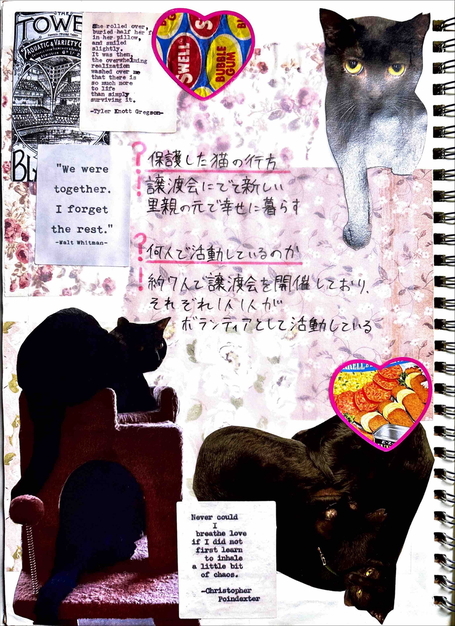 TOWE
AQUATIC & VARIETY
She rolled over,
buried half her f
in her pillow,
and smiled
slightly.
It was then,
the overwhelming
realization
washed over me
that there is
so much more
to life
than simply
surviving it.
-Tyler Knott Gregson-
SWELL
BUBBLE
GUM
BL
"We were
together.
I forget
the rest."
-Walt Whitman-
? 保護した猫の行方
譲渡会にでて新しい
里親の元で幸せに暮らす
? 何人で活動しているのか
約7人で譲渡会を開催しており、
それぞれ1人1人が
ボランティアとして活動している
Never could
I
breathe love
if I did not
first learn
to inhale
a little bit
of chaos.
-Christopher
Poindexter